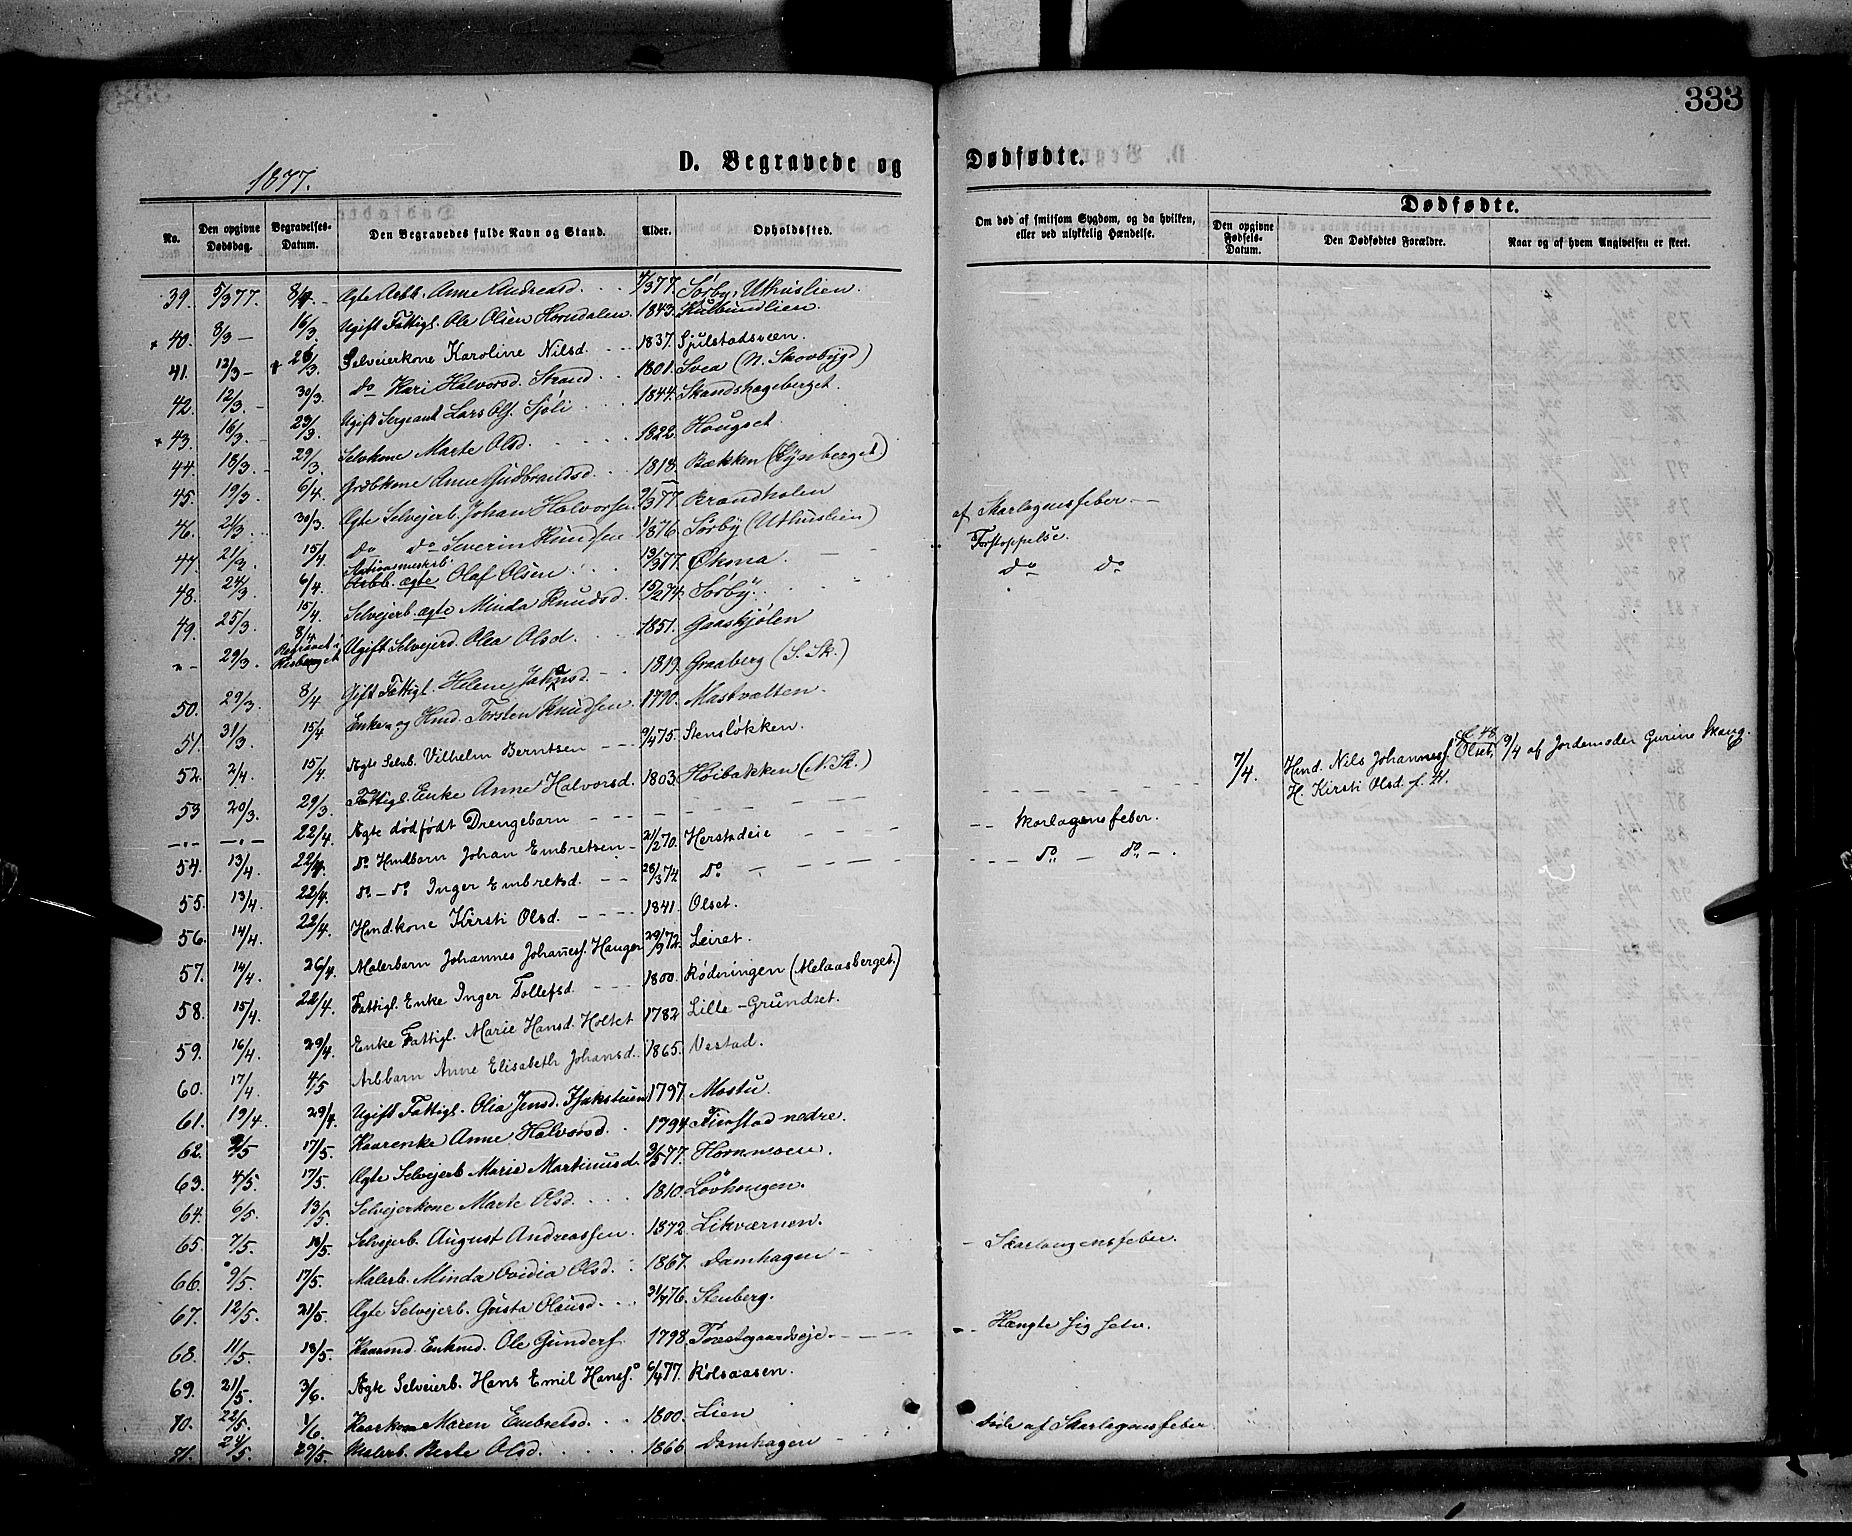 333
D. Begravede og Dødfødte.
1877.
No. Den opgivne Dødsdag. Begravelses-Datum. Den Begravedes fulde Navn og Stand. Alder. Opholdssted. Om død af smitsom Sygdom, og da hvilken, eller ved ulykkelig Hændelse. Dødfødte. Den opgivne Fødsels-Datum. Den Dødfødtes Forældre. Naar og af hvem Angivelsen er skeet.
39. 5/3 77. 8/4 Ægte Anne Andreasd. 4/3 77. Sørby, Uthuslien.
× 40. 8/3 16/3 Ugift Fattigl. Ole Olsen Horndalen 1843. Kulbundlien.
41. 12/3 26/3 Selveierkone Karoline Nilsd. 1837. Spilstadsvæn.
42. 12/3. 30/3. do Kari Halvorsd. Strand 1801. Svea (N. Skovbygd)
× 43. 16/3. 23/3. Ugift Sergeant Lars Ols. Sjøli 1844. Skandshageberget.
44. 18/3. 29/3 Selvkone Marte Olsd. 1822. Hougset.
45. 19/3. 6/4. Anne Gudbrandsd. 1818. Bækken (Lysberget)
46. 21/3. 30/3. Ægte Selvejerb. Johan Halvorsen 9/3 77. Brandholen af Skarlagensfeber
47. 21/3. 15/4 do do Severin Knudsen 1/8 76. Sørby (Uthuslien) Forstoppelse.
48. 24/3 6/4. ægte Olaf Olsen 13/1 77. Øksna do do
49. 25/3. 15/4. Selvejerb. ægte Minda Knudsd. 15/2 74. Sørby.
"- 29/3. 8/4 Begravet i Risberget Ugift Selvejerd. Olea Olsd. 1851. Gaaskjølen
50. 29/3. 8/4 Gift Fattigl. Helene 1819. Graaberg (S. Sk.)
51. 31/3. 15/4 Enkem og Hmd. Torsten Knudsen 1790. Mastvalten.
52. 2/4. 15/4. Ægte Selvb. Vilhelm Berntsen 9/4 75. Stensløkken.
53 20/3. 29/3 Fattigl. Enke Anne Halvorsd. 1803. Høibakken (N. Sk.)
22/4. Ægte dødfødt Drengebarn 7/4. Hmd. Nils Johanness. Olset, H. Kirsti Olsd. f. 41. 9/4 af Jordemoder Gurine Skaug.
54. 13/4 22/4. do Hmdbarn Johan Embretsen 21/2 70. Herstadeie Skarlagensfeber.
55. 13/4. 22/4. do - do Inger Embretsd. 28/3 74. do do do
56. 14/4. 22/4. Hmd.kone Kirsti Olsd. 1841. Olset.
57. 14/4. 26/4. Malerbarn Johannes Johañesf. Hauger 29/9 72. Leiret.
58. 15/4. 22/4. Fattigl. Enke Inger Tollefsd. 1800. Rødningen (Melaasberget.)
59. 16/4. 29/4. Enke Fattigl. Marie Hansd. Holtet 1782 Lille-Grundset.
60. 17/4. 4/5 Arbbarn Anne Elisabeth Johansd. 1865. Vestad.
61. 19/4. 29/4. Ugift Fattigl. Olia Jensd. 1797. Mostu
62. 2/5 17/5. Kaarenke Anne Halvorsd. 1794. Finstad nedre.
63. 4/5. 17/5. Ægte Selvejerb. Marie Martinusd. 3/5 77. Hornmoen.
64. 6/5. 13/5. Selvejerkone Marte Olsd. 1810. Løvhaugen.
65. 7/5. 18/5. Selvejerb. August Andreassen. 1872. Likværnen.
66. 9/5. 17/5. Malerb. Minda Ovidia Olsd. 1867. Damhagen Skarlangensfeber.
67. 12/5. 21/5. Ægte Selvejerb. Gusta Olausd. 3/4 76. Stenberg.
68. 11/5. 18/5. Kaarmd. Enkmd. Ole Gunders. 1798. Prestgaardseje. Hængte sig selv.
69. 21/5. 3/6. Ægte Selveierb. Hans Emil Hans. 6/4 77. Kølsaasen.
70. 22/5. 1/6. Kaarkone Maren Embretsd. 1800. Lien
71. 24/5. 29/5. Malerb. Berte Olsd. 1866 Damhagen Døde af Skarlagensfeber